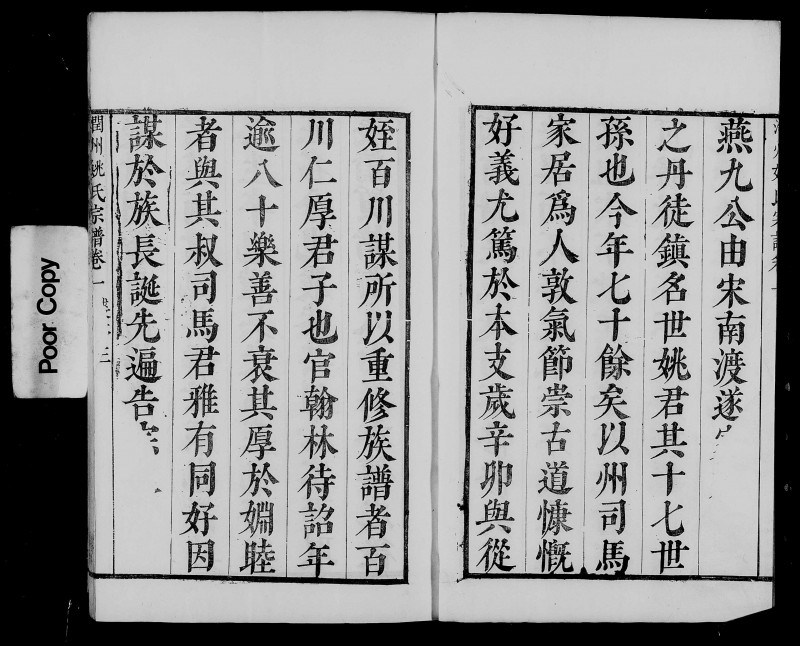 燕九公由宋南渡遂
之丹徒鎮名世姚君其十七世
孫也今年七十餘矣以州司馬
家居爲人敦氣節崇古道慷慨
好義尤篤於本支歲辛卯與從
姪百川謀所以重修族譜者百
川仁厚君子也官翰林待詔年
逾八十樂善不衰其厚於婣睦
者與其叔司馬君雅有同好因
謀於族長誕先遍告
潤州姚氏宗譜卷一 三
Poor Copy